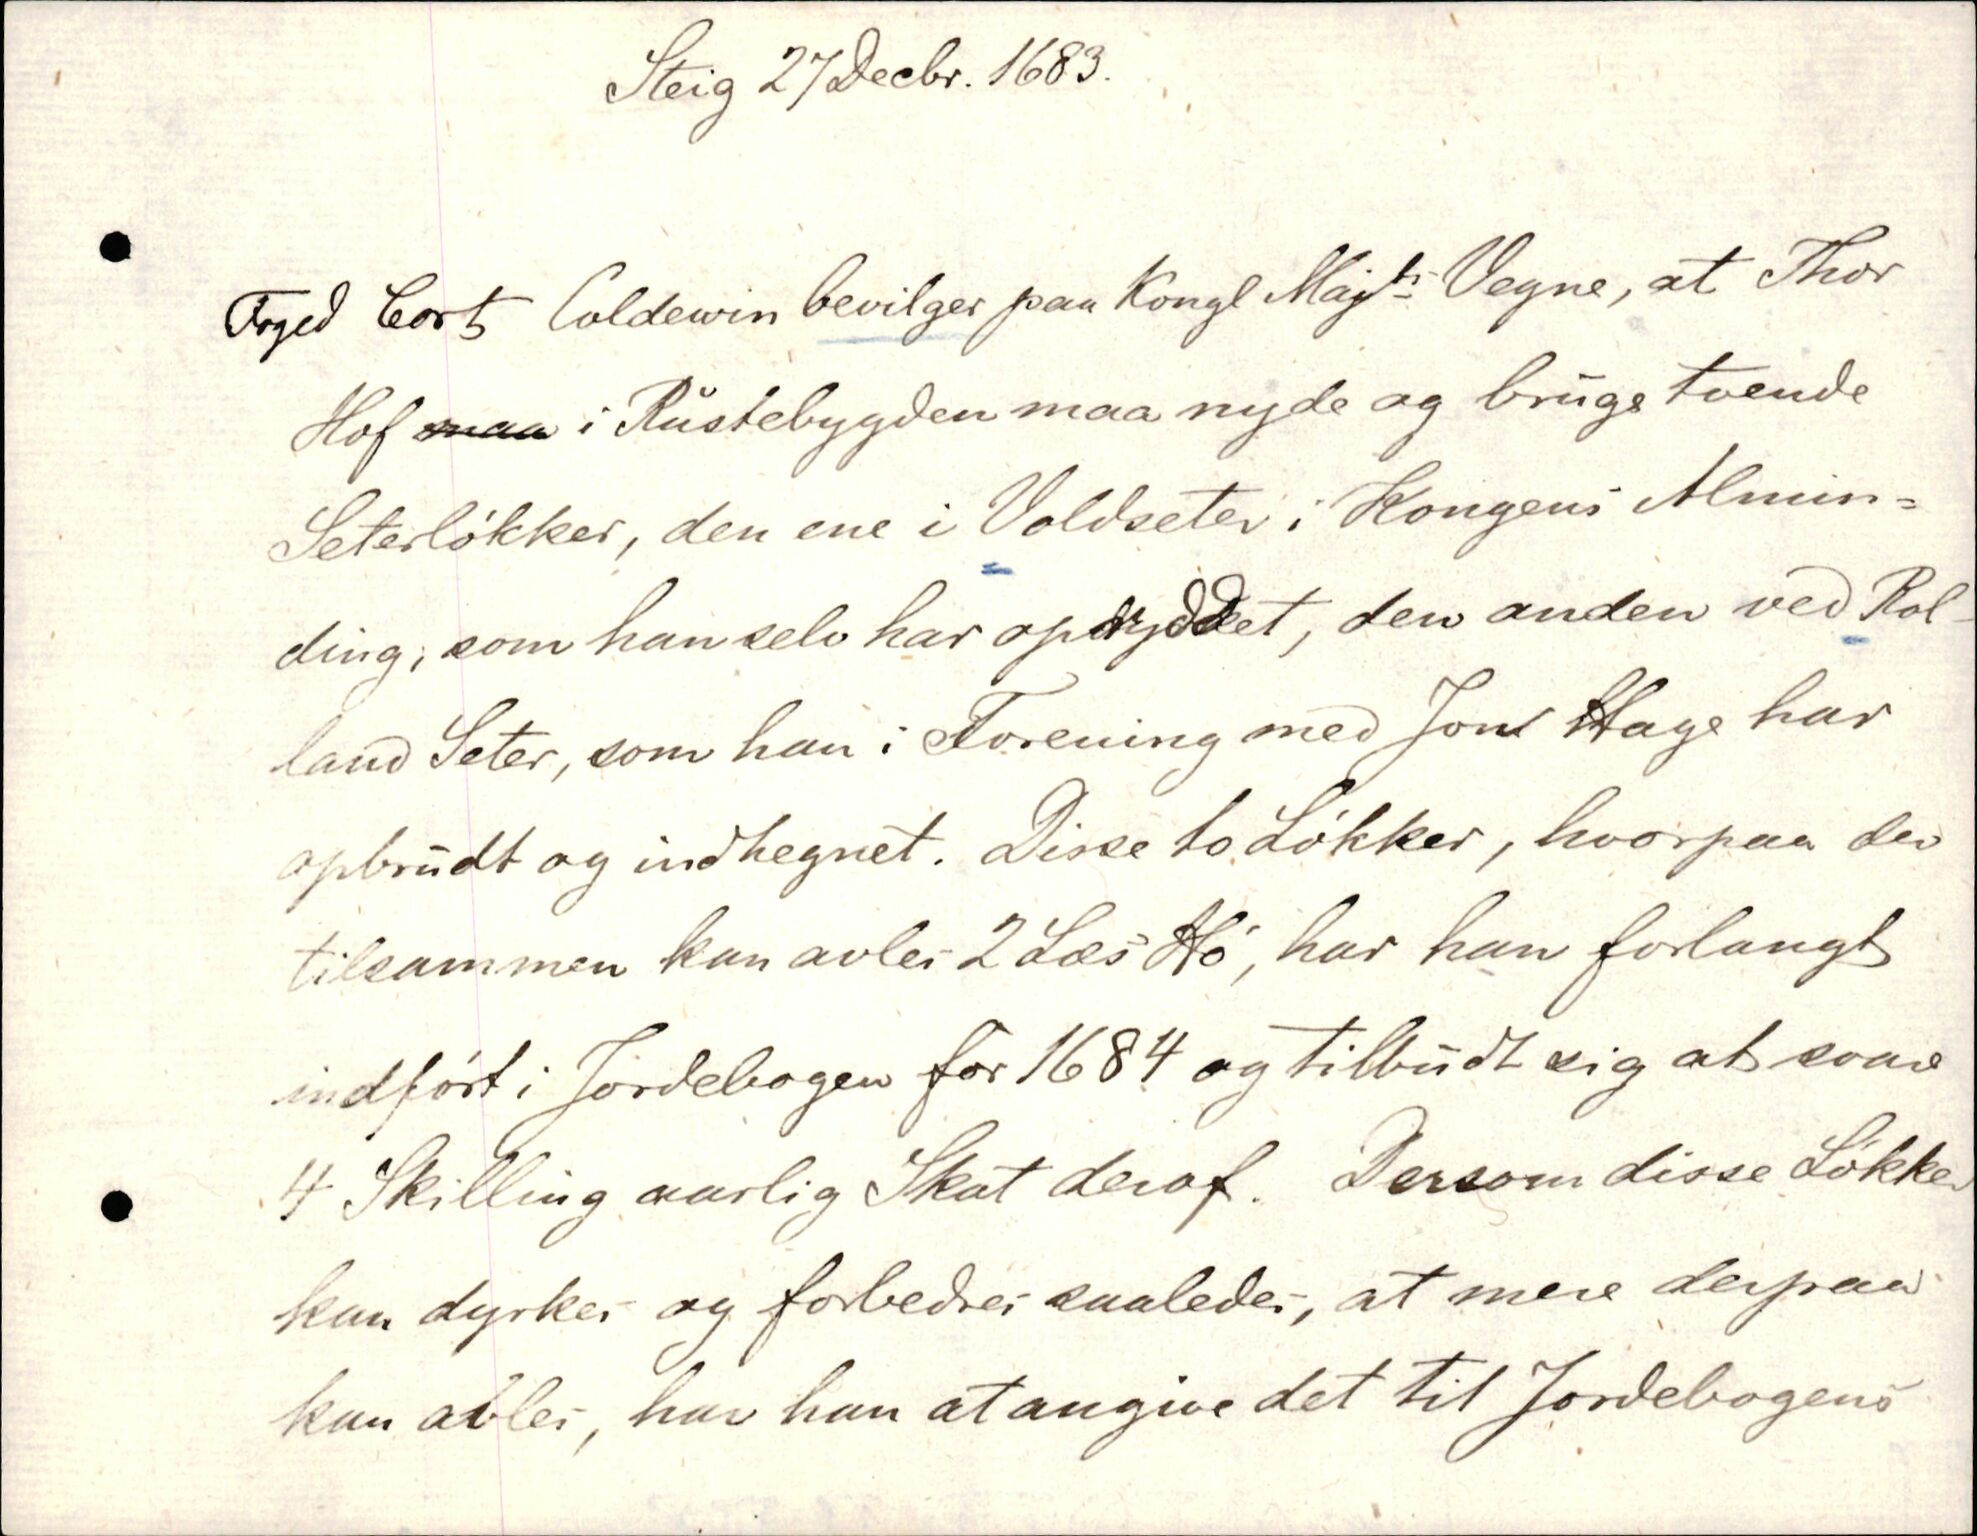 Steig 27 Decbr. 1683.
Foged Cort Coldewin bevilger paa Kongl Majts Vegne, at Thor
Hof maa i Rustebygden maa nyde og bruge tvende
Seterløkker, den ene i Voldseter i Kongens Almin=
ding, som han selv har opryddet, den anden ved Rol-
land Seter, som han i Forening med Jon Hage har
opbrudt og indhegnet. Disse to Løkker, hvorpaa der
tilsammen kan avles 2 Læs Hø, har han forlangt
indført i Jordebogen for 1684 og tilbudt sig at svare
4 Skilling aarlig Skat deraf. Dersom disse Løkker
kan dyrkes og forbedres saaledes, at mere derpaa
kan avles, har han at angive det til Jordebogens